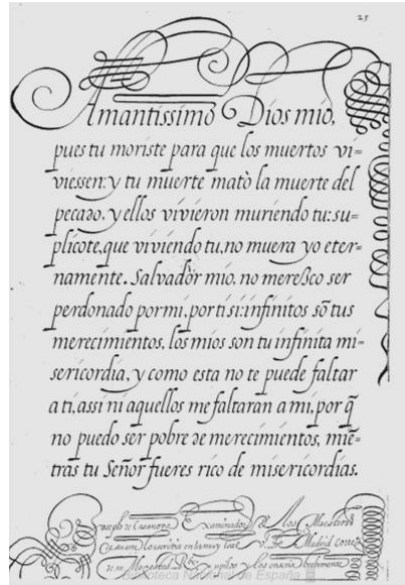 25
Amantissimo Dios mio,
pues tu moriste para que los muertos vi=
viessen: y tu muerte matò la muerte del
pecado. y ellos vivieron muriendo tu: su=
plicote, que viviendo tu, no muera yo eter-
namente. Salvador mio, no mereßco ser
perdonado por mi, por ti si: infinitos sõ tus
merecimientos, los mios son tu infinita mi-
sericordia, y como esta no te puede faltar
a ti, assi ni aquellos me faltaran a mi, por q̃
no puedo ser pobre de merecimientos, miẽ-
tras tu Señor fueres rico de misericordias.
Joseph de Casanova Examinador de los Maestros
lo escribia en la muy leal Madrid corte
de su Magestad
Biblioteca Nacional de España